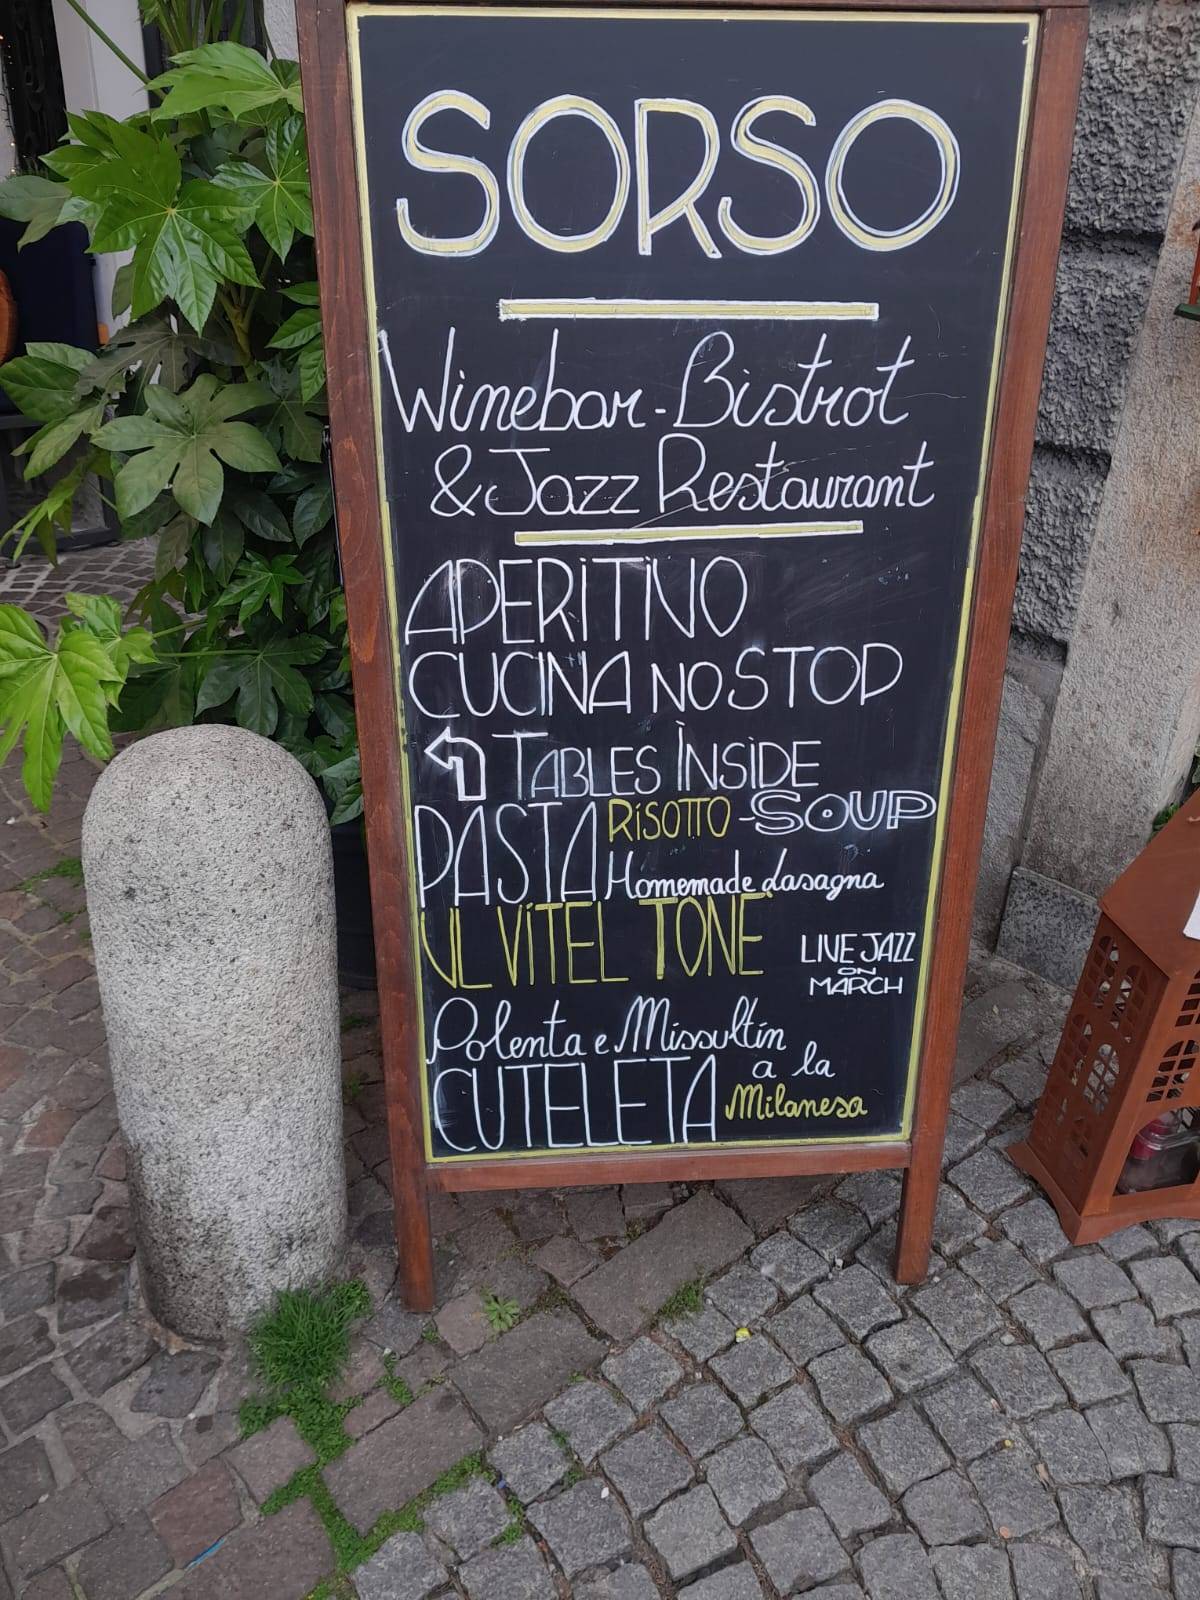 SORSO
Winebar - Bistrot
& Jazz Restaurant
APERITIVO
CUCINA NO STOP
TABLES INSIDE
PASTA RISOTTO - SOUP
Homemade Lasagna
VL VITEL TONÉ
LIVE JAZZ
ON
MARCH
Polenta e Missultin
CUTELETA a la
Milanesa